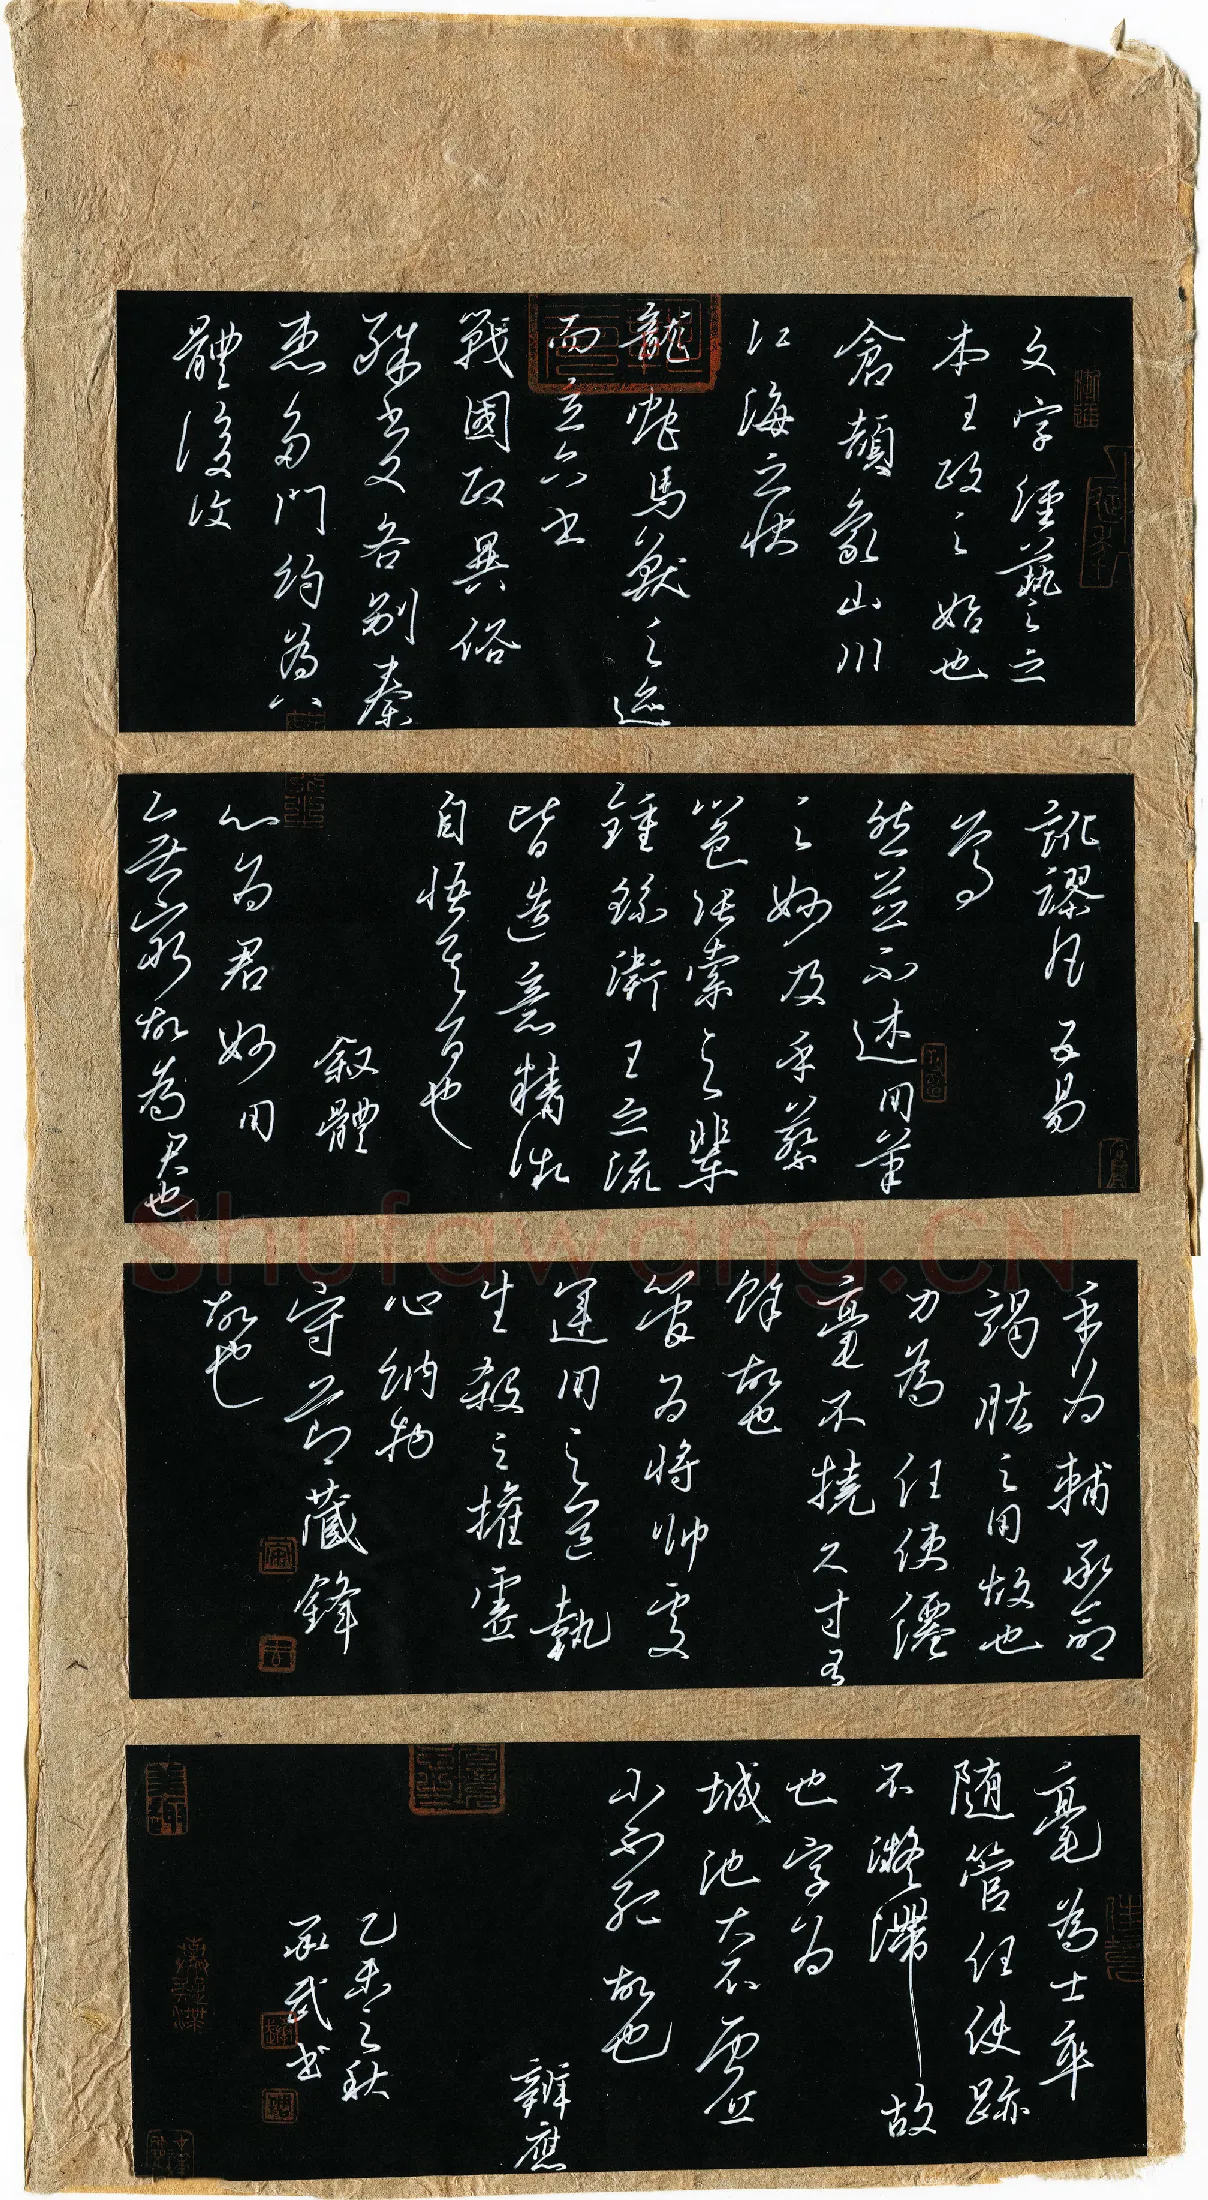 文字經藝之
本王政之始也
倉頡象山川
江海之狀
龍蛇馬獸之迹
而立六書
戰國政異俗
殊書文各別秦
患多門約為八
體後復
訛謬凡五易
焉
然並不述用筆
之妙及乎蔡
邕張索之輩
鍾繇衛王之流
皆造意精微
自悟其旨也
叙體
心為君妙用
無窮故為君也
手為輔承命
竭肱之用故也
力為任使纖
毫不撓尺寸有
餘故也
管為將帥處
運用之道執
生殺之權虛
心納物
守節藏鋒
故也
毫為士卒
隨管任使跡
不凝滯故
也字為
城池大不虛
小不孤故也
辨應
乙未之秋
承武书
Shufawang.CN